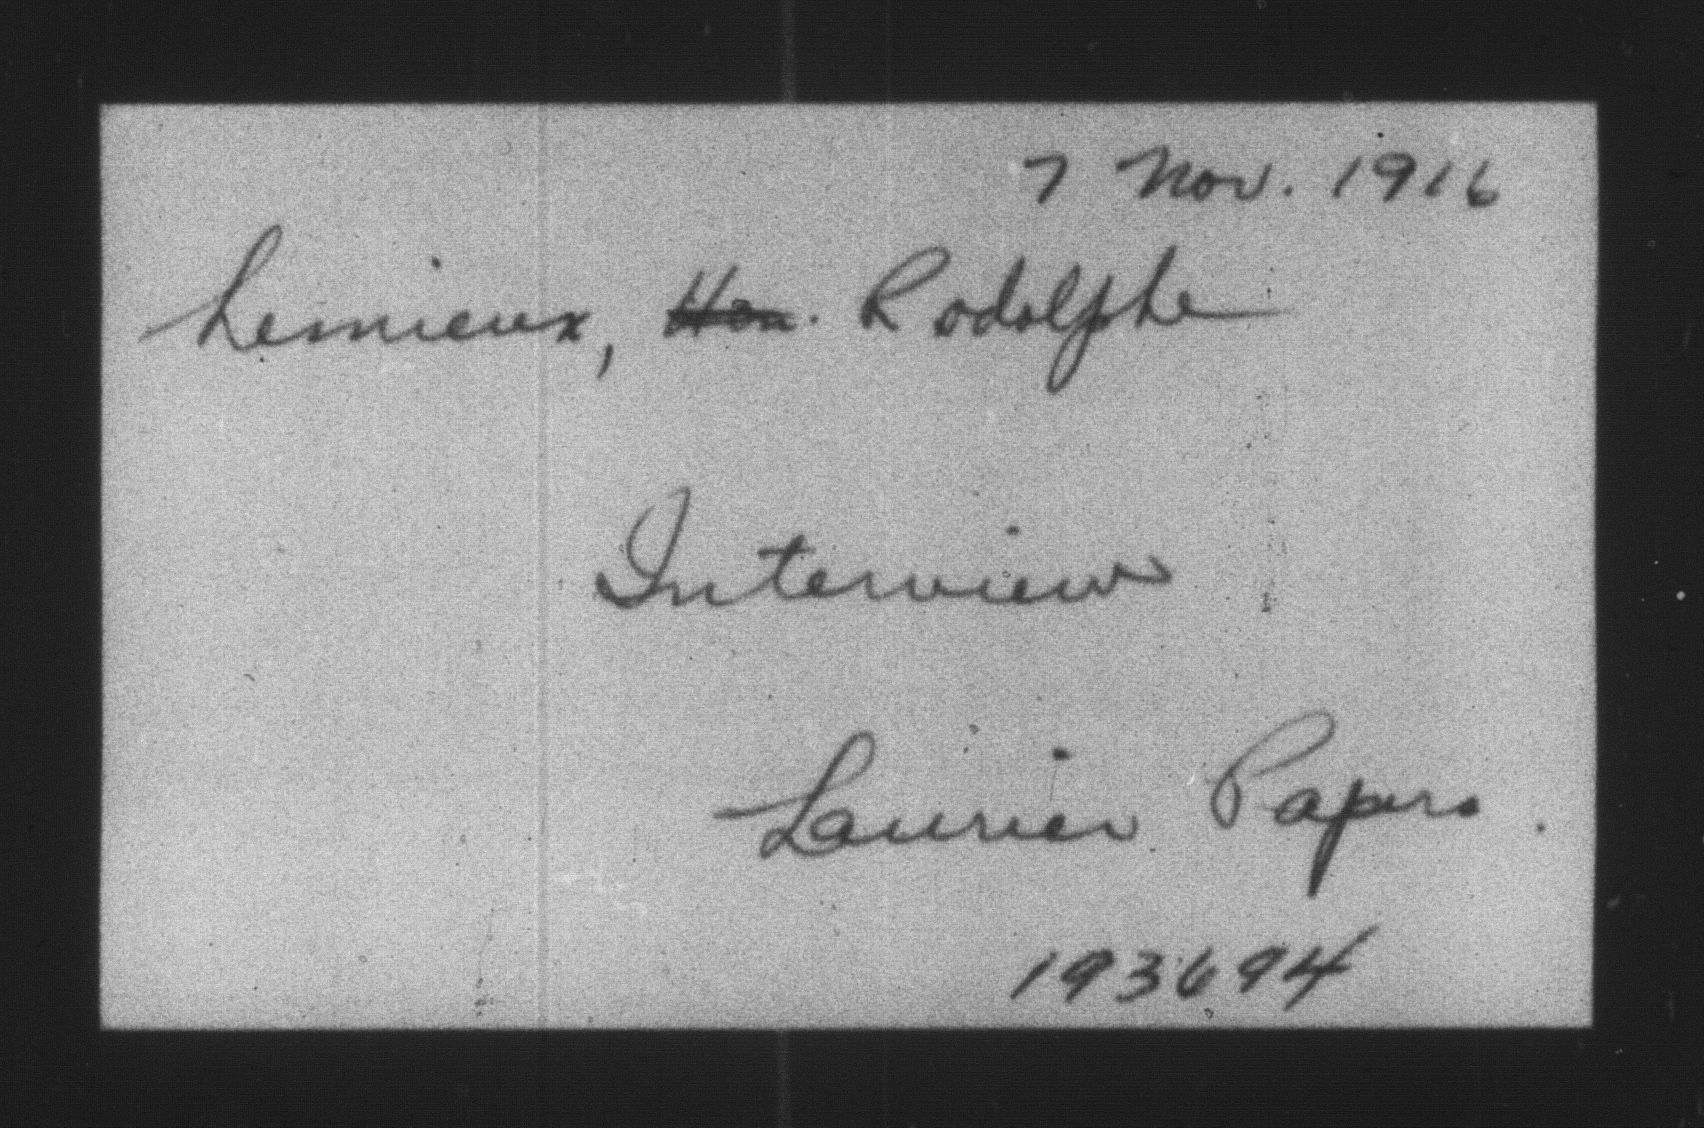 7 Nov. 1916
Lemieux, Hon. Rodolphe
Interview
Laurier Papers.
193694